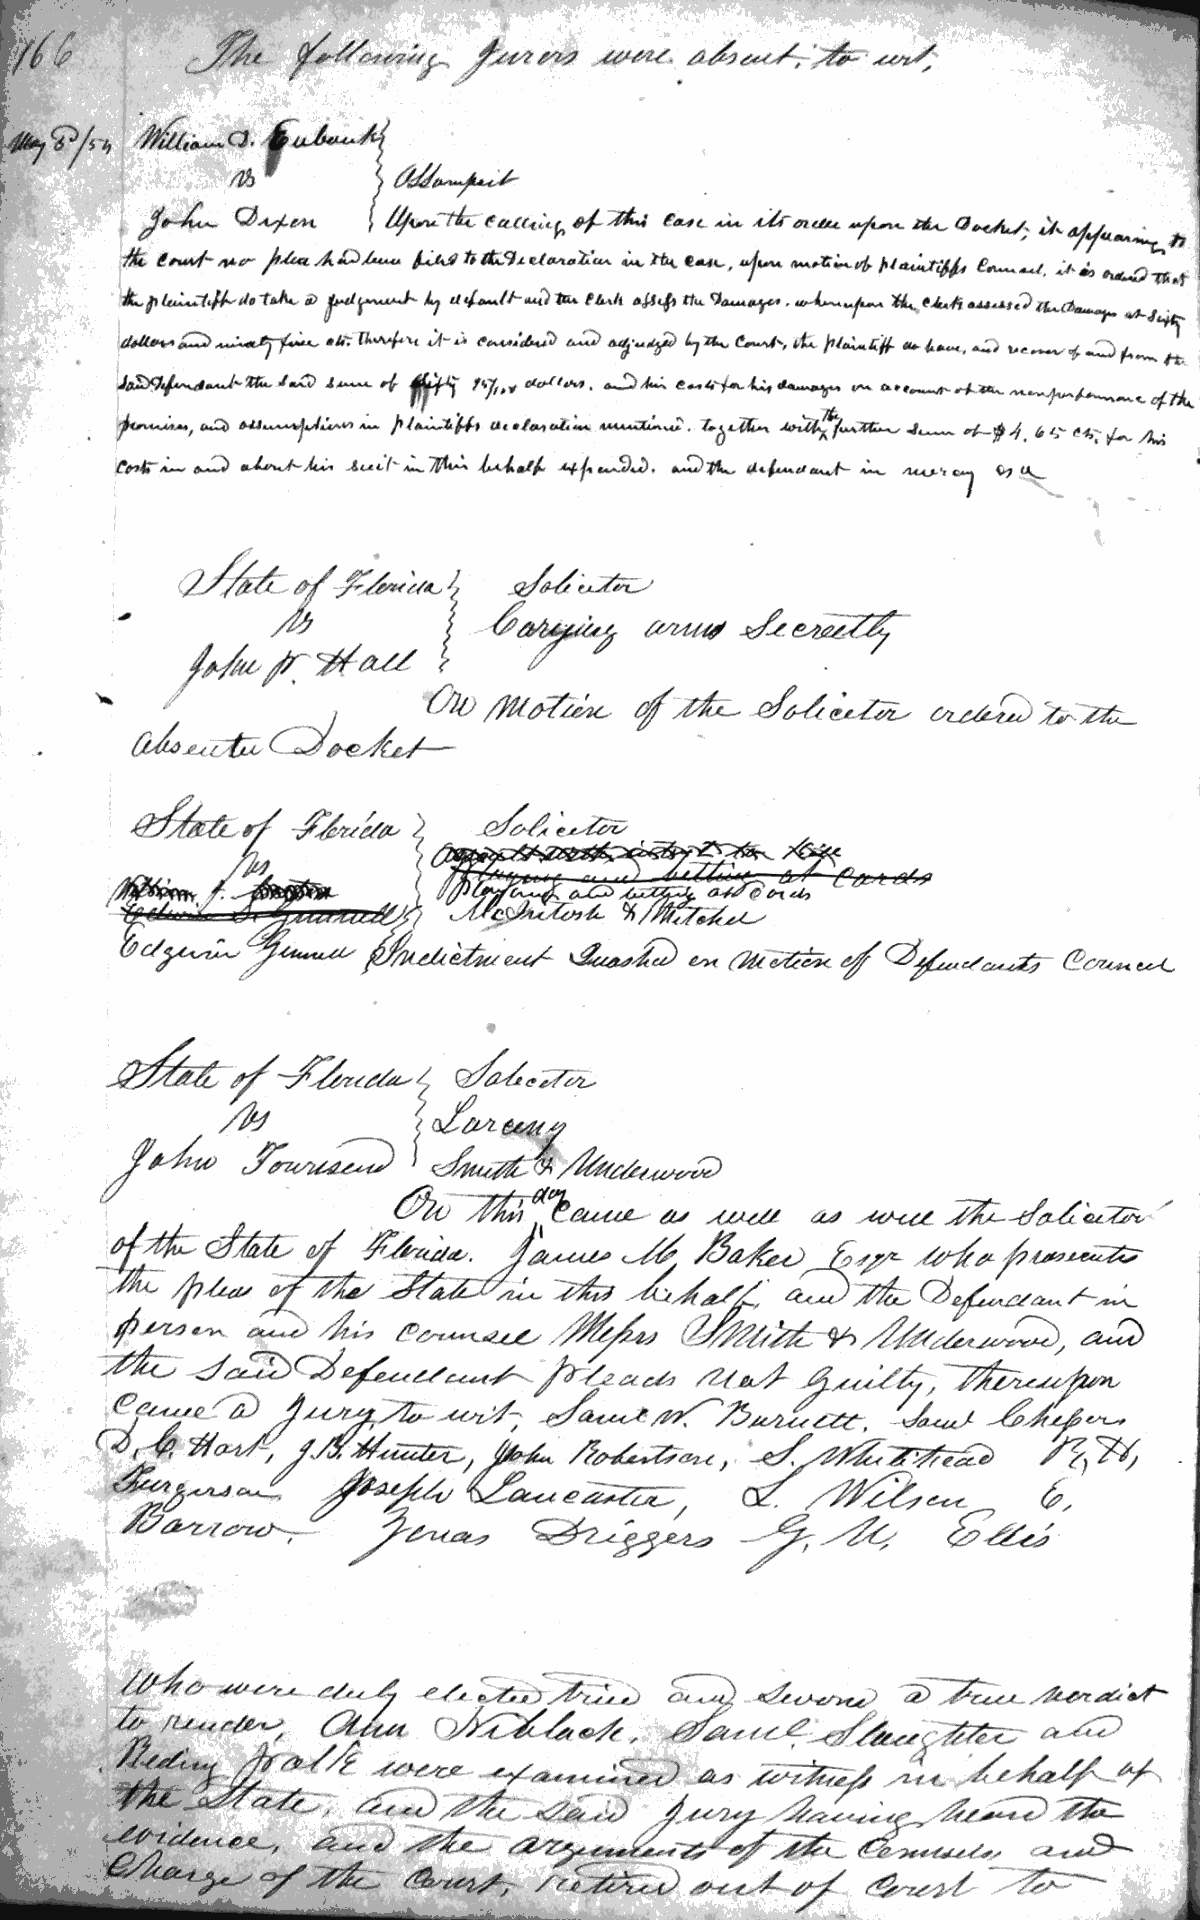 166
The following Jurors were absent, to wit,
May 8th/54 William D. Eubank
vs Assumpsit
John Dixon Upon the calling of this case in its order upon the Docket, it appearing to
the court no plea had been filed to the Declaration in the case, upon motion of plaintiffs Council, it is ordered that
the plaintiff do take a judgement by default and the Clerk assess the Damages. whereupon the Clerk assessed the Damages at Sixty
dollars and ninety five cts. therefore it is considered and adjudged by the Court, the plaintiff do have, and recover of and from the
said Defendant the said sum of fifty 95/100 dollars. and his costs for his damages on account of the nonperformance of the
promises, and assumptions in plaintiffs declaration mentioned. together with the further sum of $4.65 cts, for his
costs in and about his suit in this behalf expended. and the defendant in mercy &c
State of Florida Solicitor
vs Carying arms Secreetly
John P. Hall
On motion of the Solicitor ordered to the
absentee Docket
State of Florida Solicitor
vs Assault with intent to
William J. Playing and betting at Cards
playing and betting at Cards
Edwin McIntosh & Mitchel
Indictment Quashed on motion of Defendants Council
State of Florida Solicitor
vs Larceny
John Townsend Smith & Underwood
On this day came as well as well the Solicitor
of the State of Florida. James M Baker Esqr who prosecutes
the pleas of the State in this behalf, and the Defendant in
person and his counsel Messrs Smith & Underwood, and
the said Defendant pleads not guilty, thereupon
came a Jury, to wit, Saml W. Burnett, Saml
D. C. Hart, J. B. Hunter, John Robertson, S. Whitehead R, H,
Furgerson Joseph Lancaster, L. Wilson E,
Barrow. Jonas Driggers G. W. Ellis
Who were duly elected tried and sworn a true verdict
to render, Ann Niblack, Saml Slaughter and
Reding Polk were examined as witness in behalf of
the State, and the said Jury having heard the
evidence, and the arguments of the Counsels and
Charge of the Court, retired out of Court to